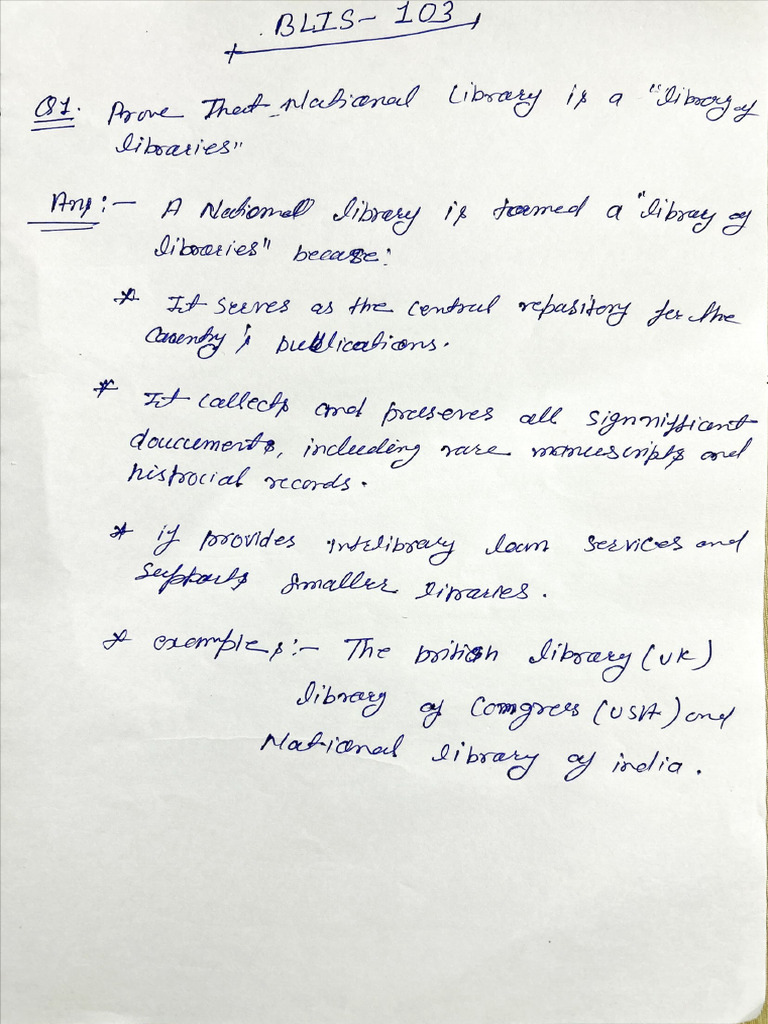 BLIS - 103
Q1. Prove That National Library is a "library of
libraries"
Ans:- A National library is tarmed a "library of
libraries" because:
* It serves as the central repasitory for the
Country's publications.
* It callects and preserves all signnifficant
doucuments, including rare manuscripts and
histrocial records.
* if provides intelibrary loan services and
supports smaller libraries.
* examples:- The british library (UK)
library of Congress (USA) and
National library of india.